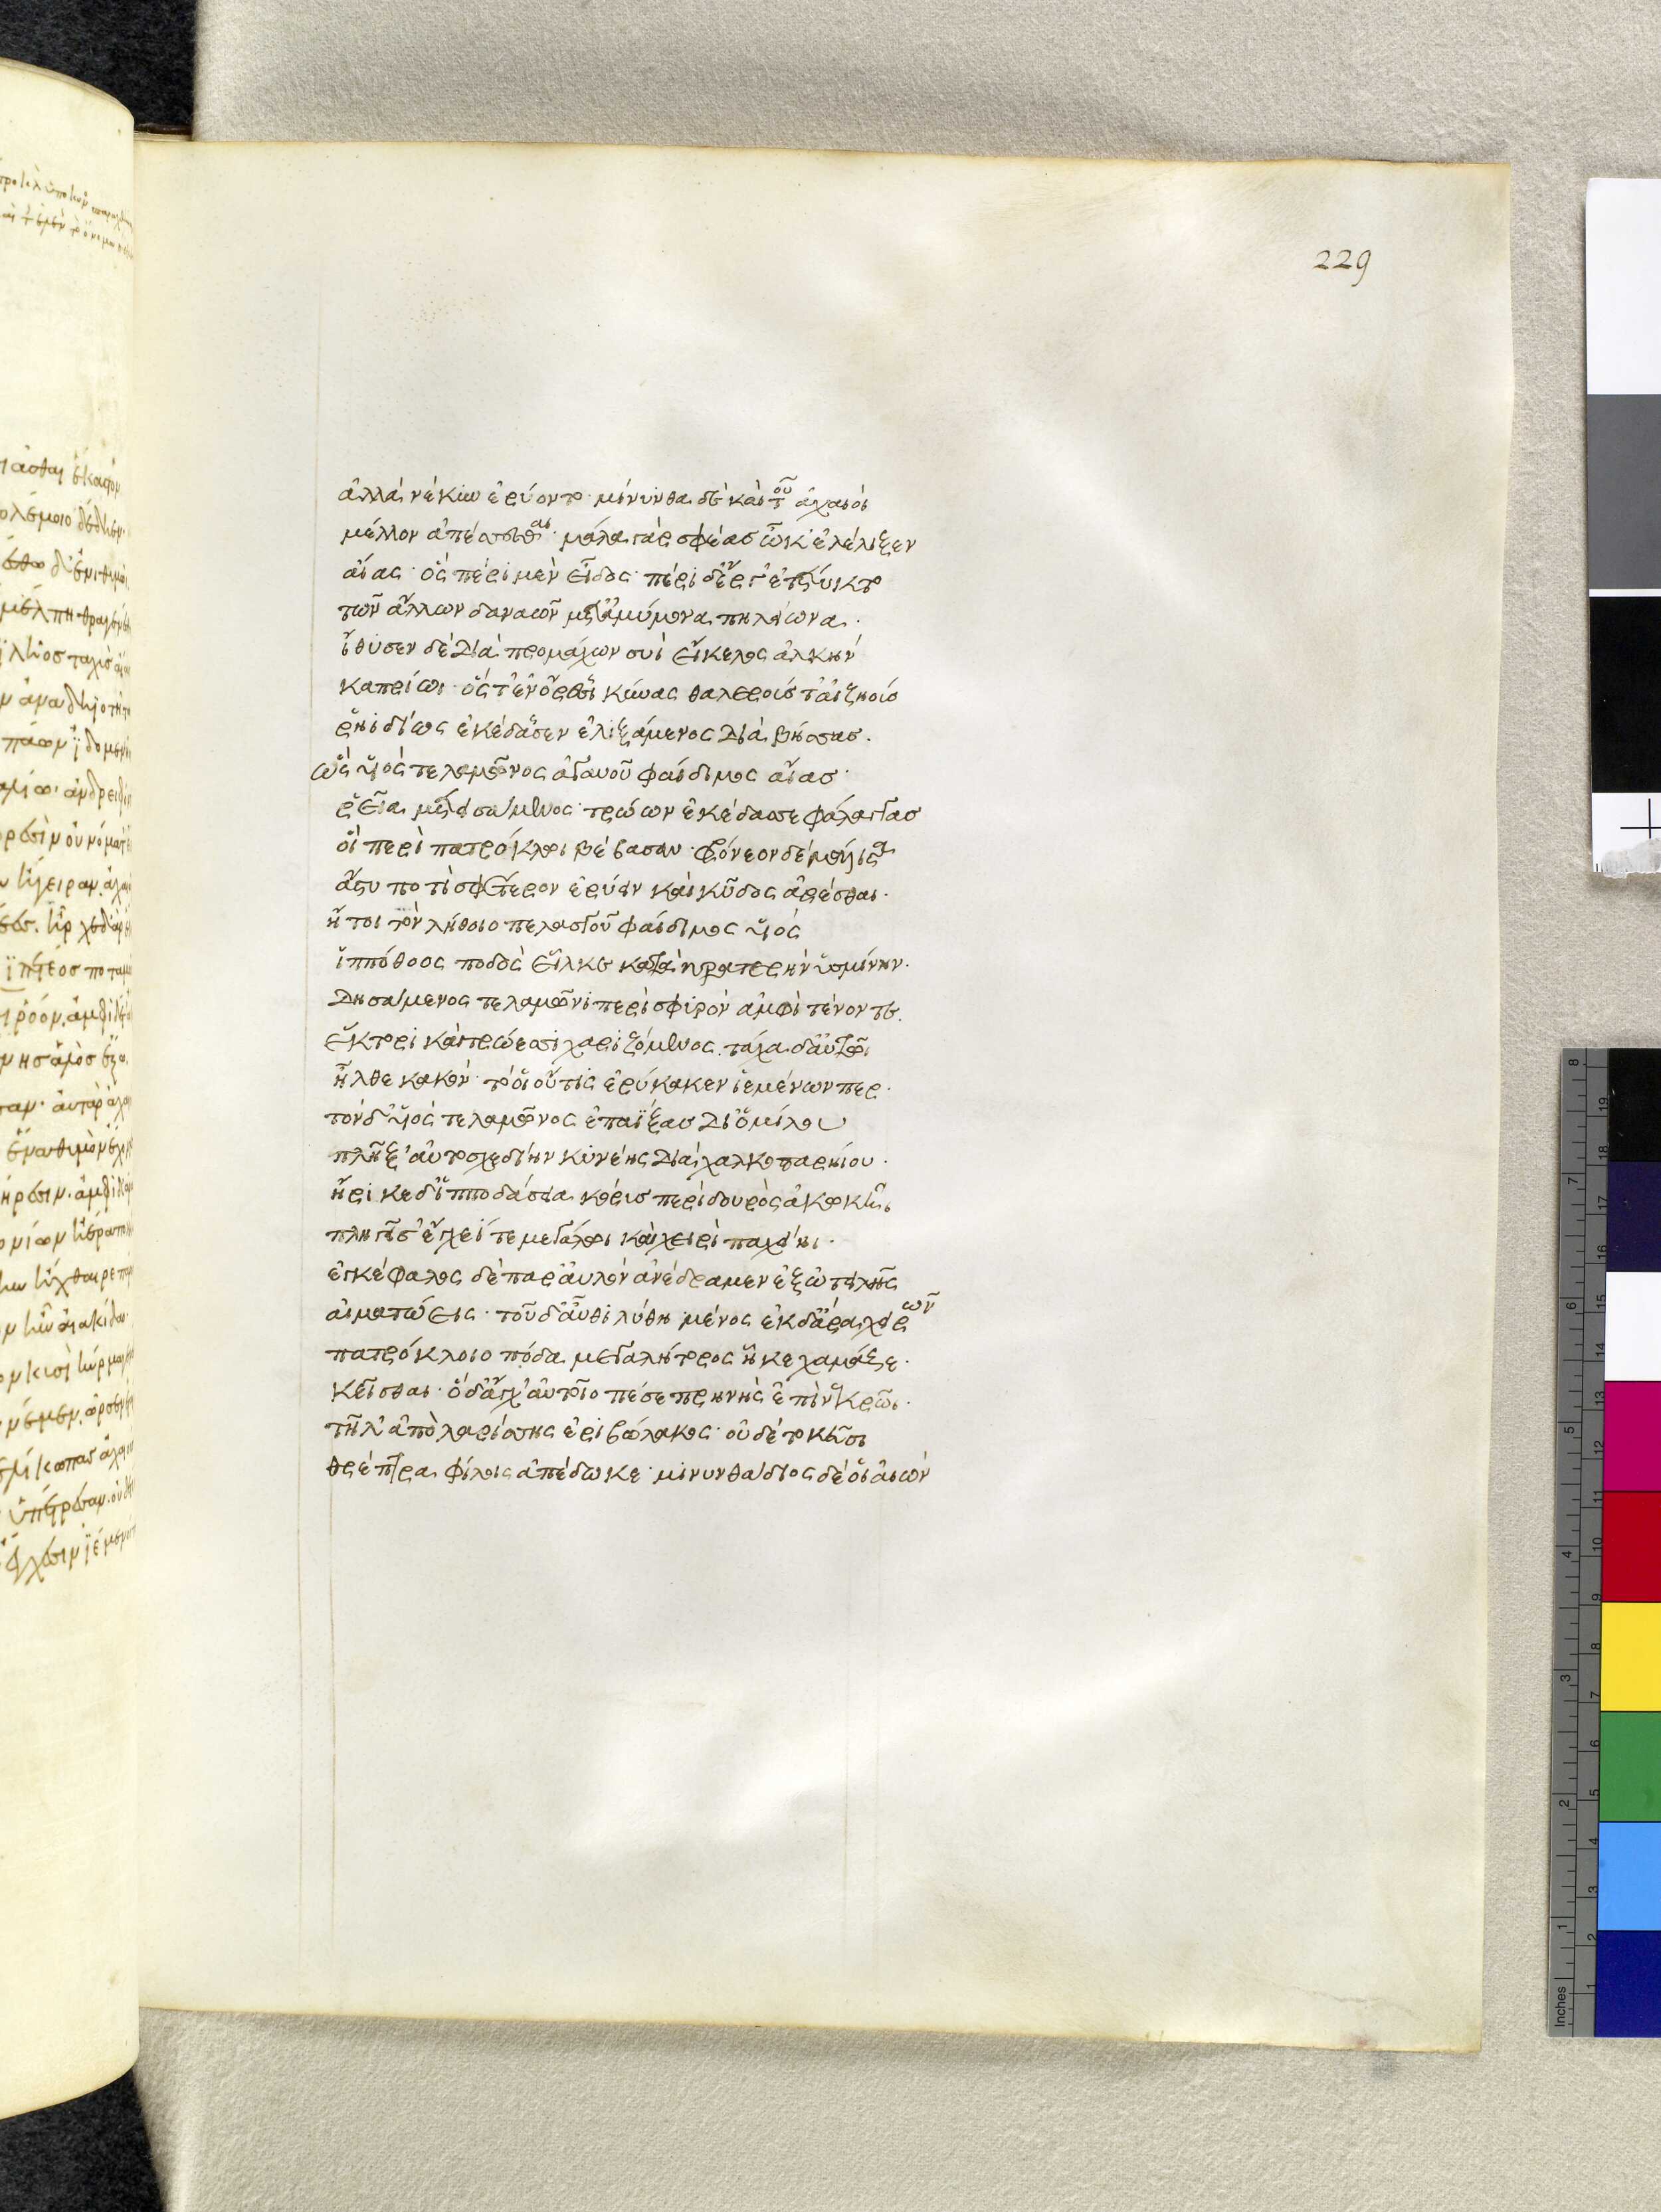 229
ἀλλὰ νέκυν ἐρύοντο· μίνυνθα δὲ καὶ τοῦ ἀχαιοὶ
μέλλον ἀπέσσεσθαι· μάλα γάρ σφεας ὦκ' ἐλέλιξεν
αἴας· ὃς πέρι μὲν εἶδος· πέρι δ' ἔργ' ἐτέτυκτο
τῶν ἄλλων δαναῶν μετ' ἀμύμονα πηλείωνα.
ἴθυσεν δὲ διὰ προμάχων συῒ εἴκελος ἀλκὴν
καπρίωι· ὅς τ' ἐν ὄρεσσι κύνας θαλερούς τ' αἰζηοὺς
ῥηϊδίως ἐκέδασσεν ἑλιξάμενος διὰ βήσσας.
ὣς υἱὸς τελαμῶνος ἀγαυοῦ φαίδιμος αἴας·
ῥεῖα μετεισάμενος· τρώων ἐκέδασσε φάλαγγας
οἳ περὶ πατρόκλωι βέβασαν· φρόνεον δὲ μάλιστα
ἄστυ ποτὶ σφέτερον ἐρύειν καὶ κῦδος ἀρέσθαι.
ἤτοι τὸν λήθοιο πελασγοῦ φαίδιμος υἱὸς
ἱππόθοος ποδὸς εἷλκε κατὰ κρατερὴν ὑσμίνην.
δησάμενος τελαμῶνι περὶ σφυρὸν ἀμφὶ τένοντε.
ἕκτορι καὶ τρώεσσι χαριζόμενος. τάχα δ' αὐτῶι
ἦλθε κακόν· τό οἱ οὔτις ἐρύκακεν ἱεμένων περ.
τὸν δ' υἱὸς τελαμῶνος ἐπαΐξας δι' ὁμίλου
πλῆξ' αὐτοσχεδίην κυνέης διὰ χαλκοπαρήιου.
ἤρικε δ' ἱπποδάσεια κόρυς περὶ δουρὸς ἀκωκῆι
πληγεῖσ' ἔγχεΐ τε μεγάλωι καὶ χειρὶ παχείηι.
ἐγκέφαλος δὲ παρ' αὐλὸν ἀνέδραμεν ἐξ ὠτειλῆς
αἱματώεις· τοῦ δ' αὖθι λύθη μένος ἐκ δ' ἄρα χειρῶν
πατρόκλοιο πόδα μεγαλήτορος ἧκε χαμᾶζε.
κεῖσθαι· ὃ δ' ἄγχ' αὐτοῖο πέσε πρηνὴς ἐπὶ νεκρῶι.
τῆλ' ἀπὸ λαρίσσης ἐριβώλακος· οὐδὲ τοκεῦσι
θρέπτρα φίλοις ἀπέδωκε· μινυνθάδιος δέ οἱ αἰὼν